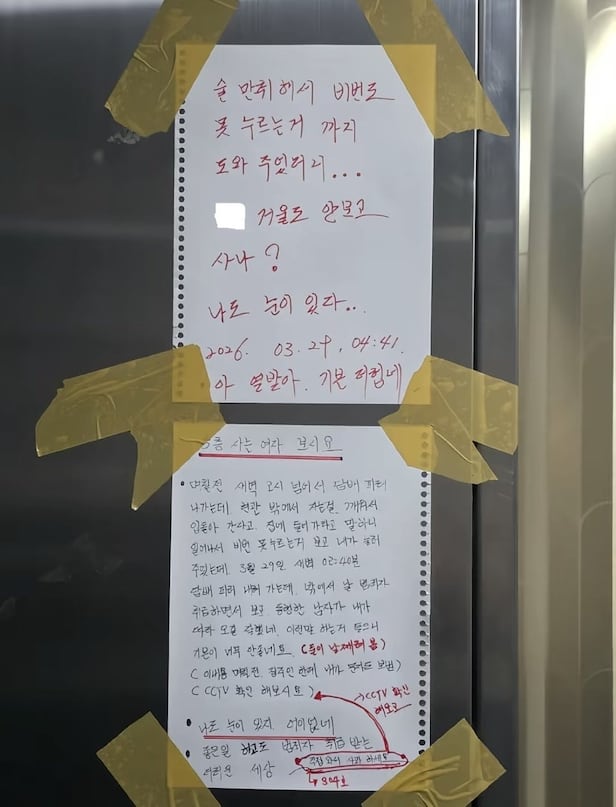 술 만취해서 비번도
못 누르는거 까지
도와 주었더니...
거울도 안보고
사나?
나도 눈이 있다..
2026. 03. 29, 04:41.
아 열받아. 기분 더럽네
5층 사는 여자 보시요
며칠전 새벽 2시 넘어서 담배 피러
나가는데. 현관 밖에서 자는걸. 깨워서
입돌아 간다고. 집에 들어가라고 말하니
일어나서 비번 못누르는거 보고 내가 눌러
주었는데. 3월 29일 새벽 02:40분
담배 피러 내려 가는데. 밖에서 날 범죄자
취급하면서 보고. 동행한 남자가 내가
따라 오길 했네. 이런말 하는거 들으니
기분이 너무 안좋네요. (둘이 날째려 봄)
(이내용 며칠전. 집주인 한테 내가 문자도 보냄)
(CCTV 확인 해보시요)
CCTV 확인
해보고
나도 눈이 있지 어이없네
좋은일 하고도 범죄자 취급 받는
더러운 세상
직접 와서 사과 하세요
304호